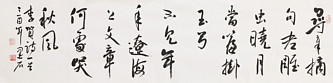 尋章摘
句老雕
虫曉月
當簾掛
玉弓
不見年
年遼海
上文章
何處哭
秋風
李賀詩一首